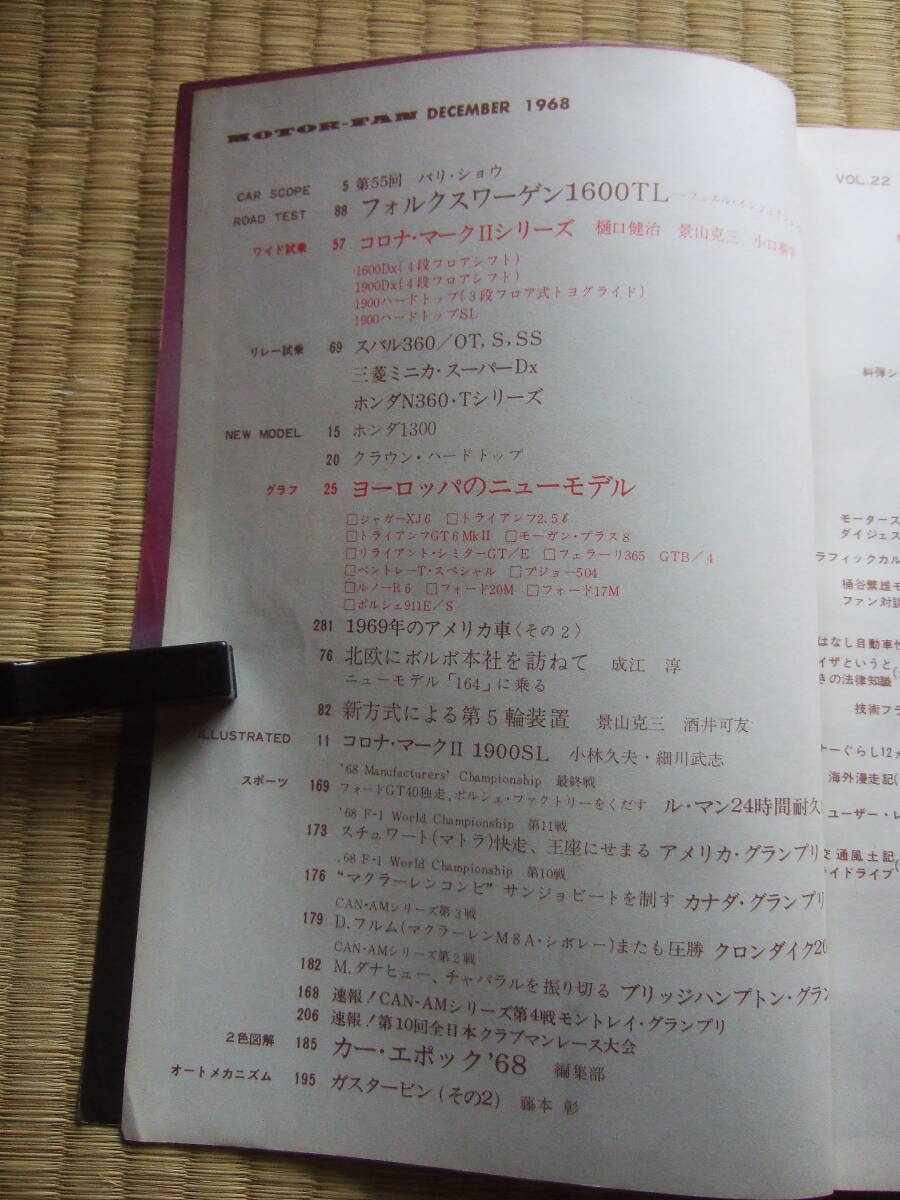 MOTOR-FAN DECEMBER 1968
CAR SCOPE 5 第55回 パリ・ショウ
ROAD TEST 88 フォルクスワーゲン1600TL
ワイド試乗 57 コロナ・マークIIシリーズ 樋口健治 景山克三 小口
1600Dx(4段フロアシフト)
1900Dx(4段フロアシフト)
1900ハードトップ(3段フロア式トヨグライド)
1900ハードトップSL
リレー試乗 69 スバル360/OT, S, SS
三菱ミニカ・スーパーDx
ホンダN360・Tシリーズ
NEW MODEL 15 ホンダ1300
20 クラウン・ハードトップ
グラフ 25 ヨーロッパのニューモデル
□ジャガーXJ6 □トライアンフ2.5ℓ
□トライアンフGT6 MkII □モーガン・プラス8
□リライアント・シミターGT/E □フェラーリ365 GTB/4
□ベントレーT・スペシャル □プジョー504
□ルノーR6 □フォード20M □フォード17M
□ポルシェ911E/S
281 1969年のアメリカ車〈その2〉
76 北欧にボルボ本社を訪ねて 成江 淳
ニューモデル「164」に乗る
82 新方式による第5輪装置 景山克三 酒井可友
ILLUSTRATED 11 コロナ・マークII 1900SL 小林久夫・細川武志
'68 Manufacturers' Championship 最終戦
スポーツ 169 フォードGT40独走、ポルシェ・ファクトリーをくだす ル・マン24時間耐久
'68 F-1 World Championship 第11戦
173 スチュワート(マトラ)快走、王座にせまる アメリカ・グランプリ
'68 F-1 World Championship 第10戦
176 “マクラーレンコンビ” サンジョビートを制す カナダ・グランプリ
CAN-AMシリーズ第3戦
179 D.フルム(マクラーレンM8A・シボレー)またも圧勝 クロンダイク20
CAN-AMシリーズ第2戦
182 M.ダナヒュー、チャパラルを振り切る ブリッジハンプトン・グラン
168 速報!CAN-AMシリーズ第4戦モントレイ・グランプリ
206 速報!第10回全日本クラブマンレース大会
2色図解 185 カー・エポック'68 編集部
オートメカニズム 195 ガスタービン(その2) 藤本 彰
VOL.22
糾弾シ
モータース
ダイジェス
ラフィックカル
桶谷繁雄モ
ファン対談
はなし自動車性
イザというと
きの法律知識
技術フラ
ナーぐらし12カ
海外漫走記(
ユーザー・レ
交通風土記
イドライブ(